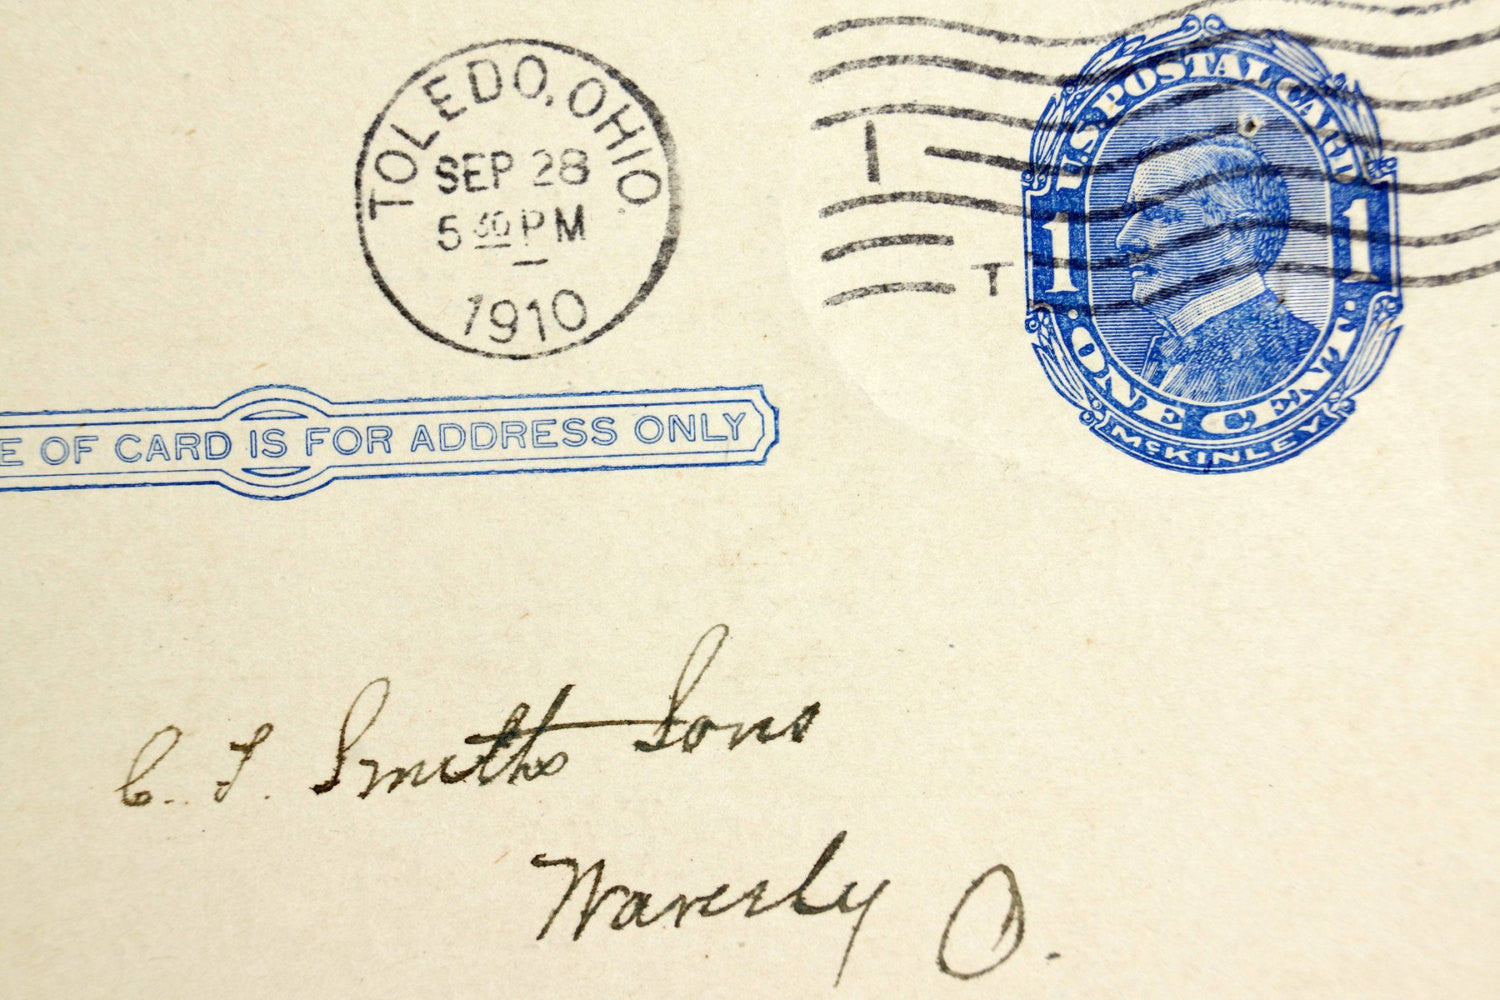 TOLEDO, OHIO
SEP 28
5 30 PM
1910
I
T
U.S. POSTAL CARD
1 1
· ONE CENT ·
McKINLEY
E OF CARD IS FOR ADDRESS ONLY
C. F. Smiths Sons
Waverly O.